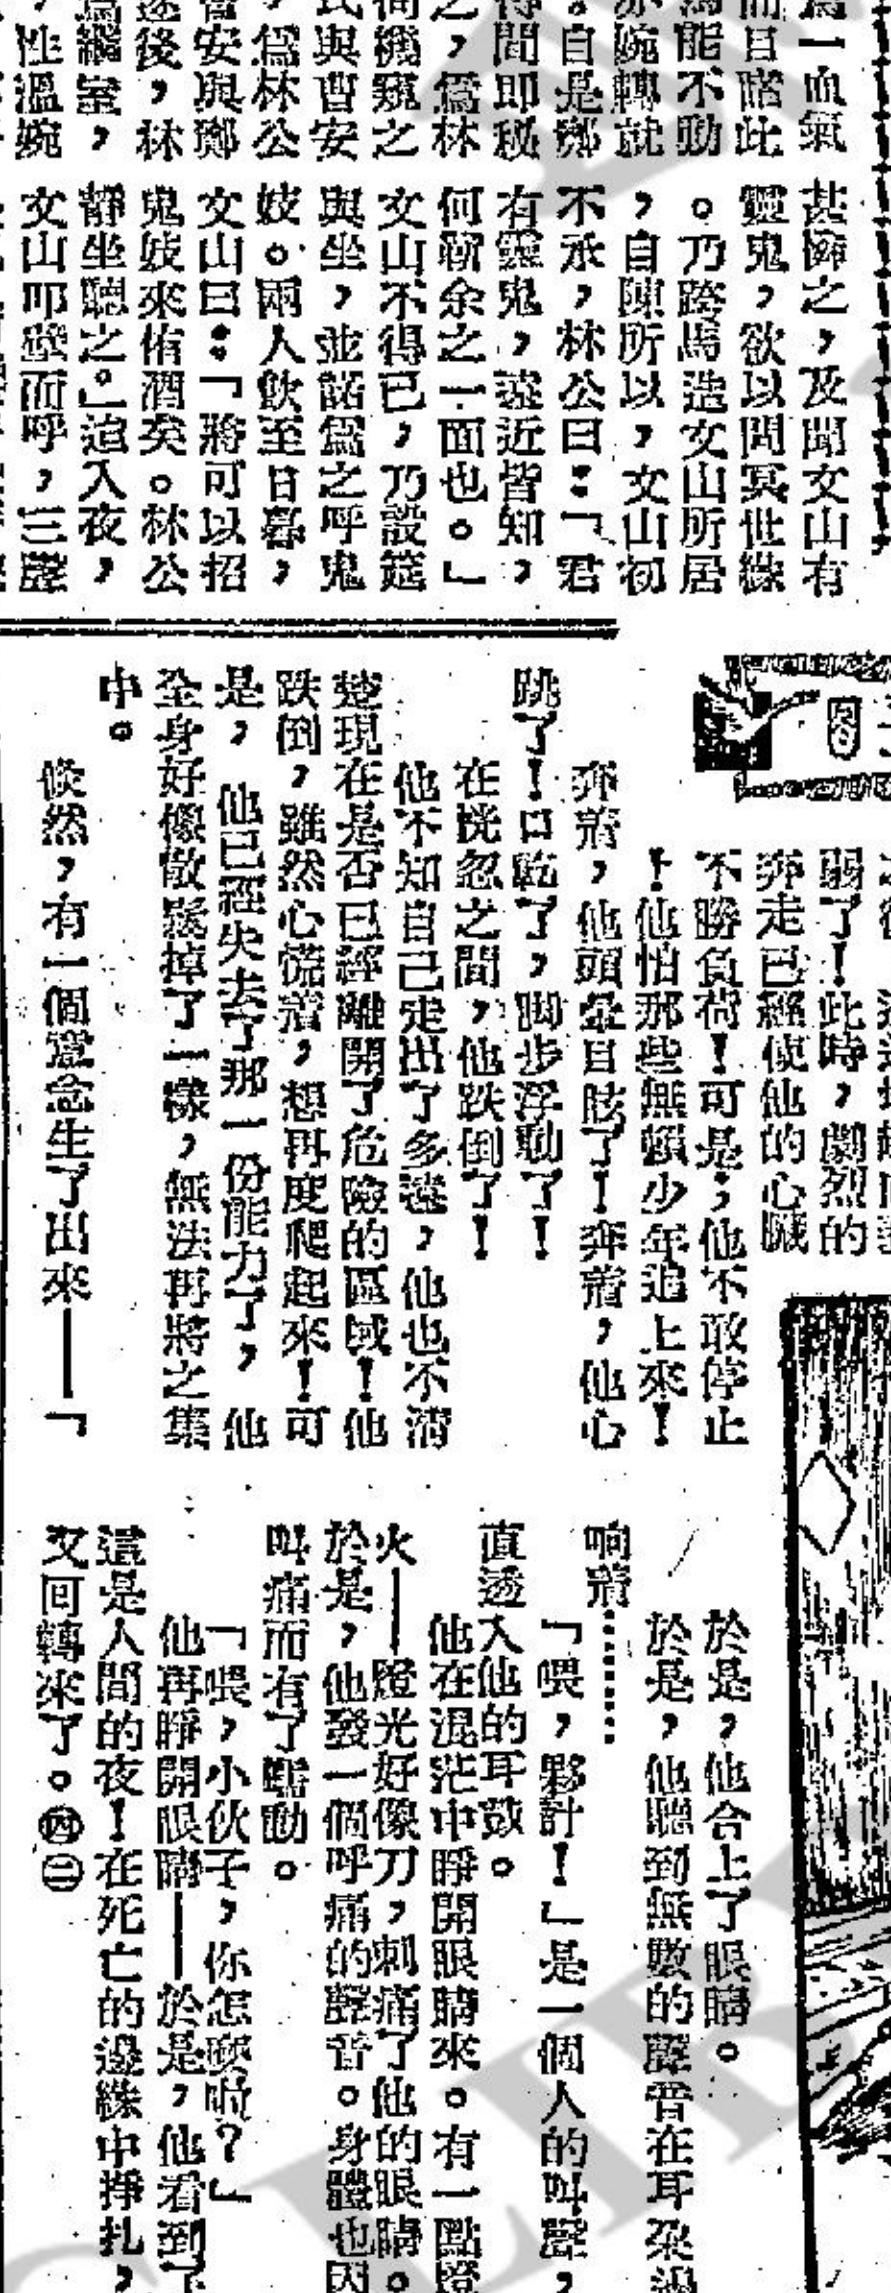 血氣
目睹此
能不動
亦婉轉就
。自是鄭
得間即秘
之,爲林
伺機窺之
氏與曹安
,爲林公
曾安與鄭
遂後,林
爲繼室,
,性溫婉
甚憐之,及聞文山有
靈鬼,欲以問冥世緣
。乃跨馬造文山所居
,自陳所以,文山初
不承,林公曰:「君
有靈鬼,遠近皆知,
何靳余之一面也。」
文山不得已,乃設筵
與坐,並諾爲之呼鬼
妓。兩人飮至日暮,
文山曰:「將可以招
鬼妓來侑酒矣。林公
靜坐聽之。」迨入夜,
文山叩壁而呼,三聲
弱了!此時,劇烈的
奔走已經使他的心臟
不勝負荷!可是,他不敢停止
!他怕那些無賴少年追上來!
奔着,他頭暈目眩了!奔着,他心
跳了!口乾了,脚步浮動了!
在恍忽之間,他跌倒了!
他不知自己走出了多遠,他也不清
楚現在是否已經離開了危險的區域!他
跌倒,雖然心慌着,想再度爬起來!可
是,他已經失去了那一份能力了,他
全身好像散鬆掉了一樣,無法再將之集
中。
倏然,有一個意念生了出來——「
於是,他合上了眼睛。
於是,他聽到無數的聲音在耳朶邊
响着⋯⋯
「喂,夥計!」是一個人的叫聲,
直透入他的耳鼓。
他在混茫中睜開眼睛來。有一點燈
火——燈光好像刀,刺痛了他的眼睛。
於是,他發一個呼痛的聲音。身體也因
叫痛而有了蠕動。
「喂,小伙子,你怎麼啦?」
他再睜開眼睛——於是,他看到了
這是人間的夜!在死亡的邊緣中掙扎,
又回轉來了。㊃㊁